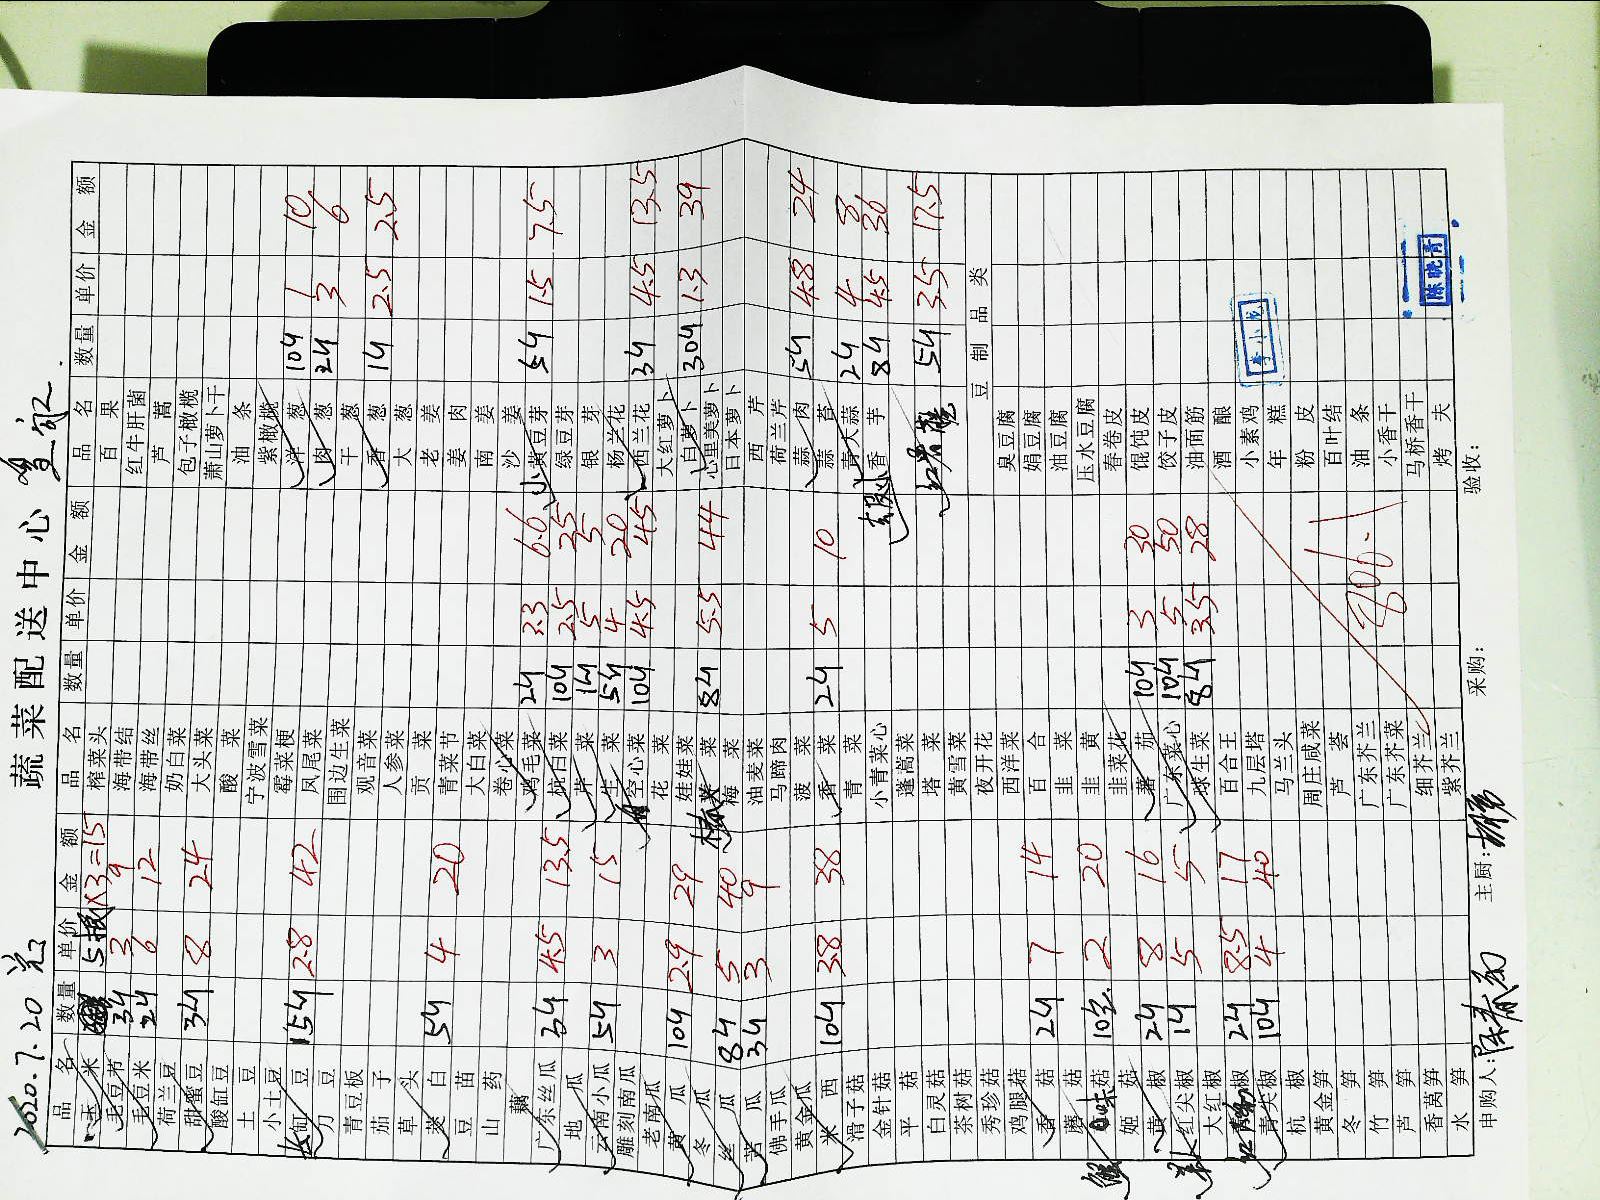 蔬菜配送中心
2020.7.20
品名 数量 单价 金额 品名 数量 单价 金额 品名 数量 单价 金额
玉米 5根 ×3=15 榨菜头 百果
毛豆节 3斤 3 9 海带结 红牛肝菌
毛豆米 2斤 6 12 海带丝 芦蒿
荷兰豆 奶白菜 包子橄榄
甜蜜豆 3斤 8 24 大头菜 萧山萝卜干
酸缸豆 酸菜 油条
土豆 宁波雪菜 紫橄榄
小土豆 霉菜梗 洋葱 10斤 1 10
长缸豆 15斤 2.8 42 凤尾菜 肉葱 2斤 3 6
刀豆 围边生菜 干葱
青豆板 观音菜 香葱 1斤 2.5 2.5
茄子 人参菜 大葱
草头 贡菜 老姜
茭白 5斤 4 20 青菜节 姜肉
豆苗 大白菜 南姜
山药 卷心菜 沙姜
藕 鸡毛菜 2斤 3.3 6.6 黄豆芽 5斤 1.5 7.5
广东丝瓜 3斤 4.5 13.5 杭白菜 10斤 2.5 25 绿豆芽
地瓜 芹菜 1斤 5 5 银芽
云南小瓜 5斤 3 15 生菜 5斤 4 20 杨兰花
雕刻南瓜 空心菜 10斤 4.5 45 西兰花 3斤 4.5 13.5
老南瓜 花菜 大红萝卜
黄瓜 10斤 2.9 29 娃娃菜 白萝卜 30斤 1.3 39
冬瓜 菜 8斤 5.5 44 心里美萝卜
丝瓜 8斤 5 40 梅菜 日本萝卜
苦瓜 3斤 3 9 油麦菜 西芹
佛手瓜 马蹄肉 荷兰芹
黄金瓜 菠菜 蒜肉 5斤 4.8 24
米西 10斤 3.8 38 香菜 2斤 5 10 蒜苔
滑子菇 青菜 青大蒜 2斤 4 8
金针菇 小青菜心 去皮小香芋 8斤 4.5 36
平菇 蓬蒿菜
白灵菇 塔菜 5斤 3.5 17.5
茶树菇 黄雪菜
秀珍菇 夜开花 豆制品类
鸡腿菇 西洋菜 臭豆腐
香菇 2斤 7 14 百合 娟豆腐
蘑菇 韭菜 油豆腐
味菇 10包 2 20 韭黄 压水豆腐
姬菇 韭菜花 春卷皮
黄椒 2斤 8 16 蕃茄 10斤 3 30 馄饨皮
红尖椒 1斤 5 5 广东菜心 10斤 5 50 饺子皮
大红椒 球生菜 8斤 3.5 28 油面筋
椒 2斤 8.5 17 百合王 酒酿
青尖椒 10斤 4 40 九层塔 小素鸡
杭椒 马兰头 年糕
黄金笋 周庄咸菜 粉皮
冬笋 芦荟 百叶结
竹笋 广东芥兰 油条
芦笋 广东芥菜 806.1 小香干
香莴笋 细芥兰 马桥香干
水笋 紫芥兰 烤夫
申购人: 主厨: 采购: 验收:
李小龙
陈晓青